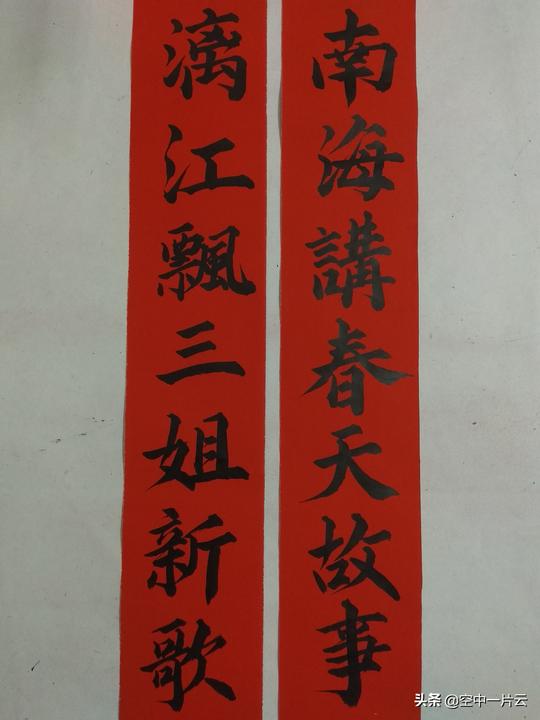 南海講春天故事
漓江飄三姐新歌
头条 @空中一片云